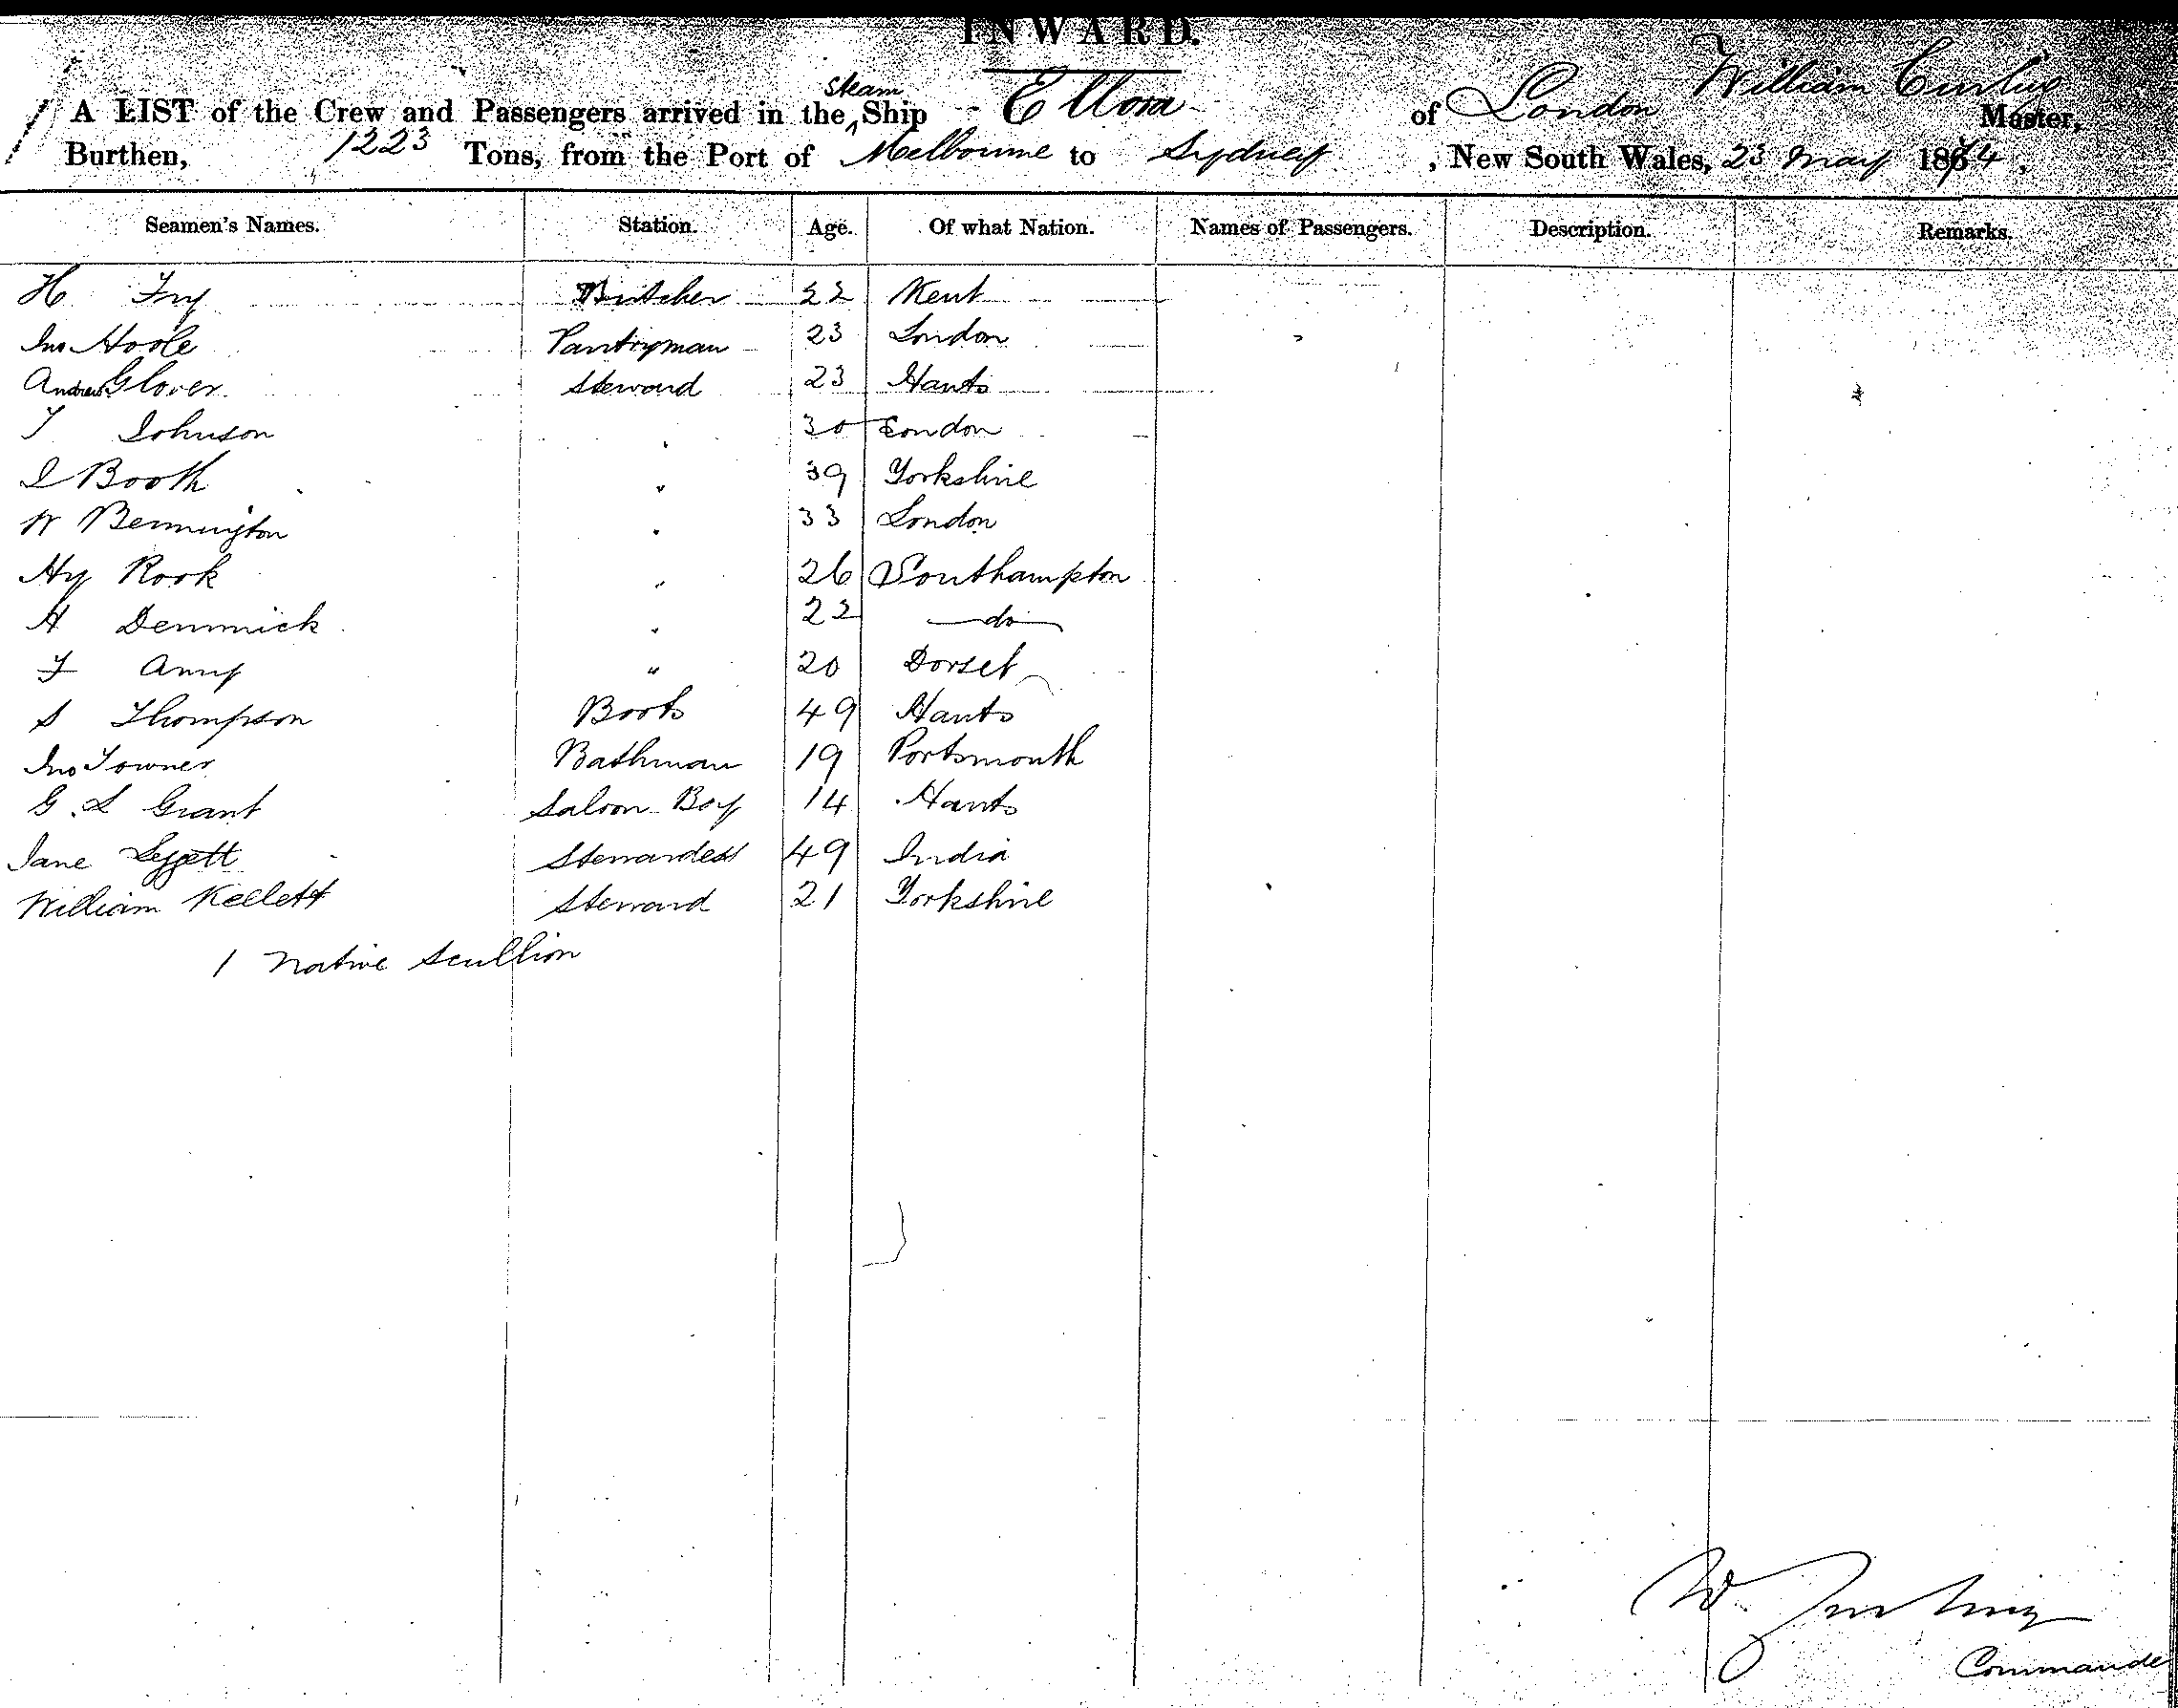 INWARD.
A LIST of the Crew and Passengers arrived in the Steam Ship Ellora of London William Curtis Master,
Burthen, 1223 Tons, from the Port of Melbourne to Sydney, New South Wales, 23 May 1864.
Seamen's Names. Station. Age. Of what Nation. Names of Passengers. Description. Remarks.
H Fry Butcher 22 Kent
Jno Hoole Pantryman 23 London
Andrew Glover Steward 23 Hants
T Johnson " 30 London
I Booth " 39 Yorkshire
W Bennington " 33 London
Hy Rook " 26 Southampton
H " 22 do
F " 20 Dorset
S Thompson Boots 49 Hants
Jno Towner Bathman 19 Portsmouth
G. L Grant Saloon Boy 14 Hants
Jane Leggett Stewardess 49 India
William Kellett Steward 21 Yorkshire
1 native Scullion
W.
Commande